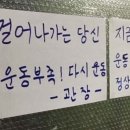 걸어나가는 당신
운동부족! 다시 운동
- 관장 -
지금
운동
정상